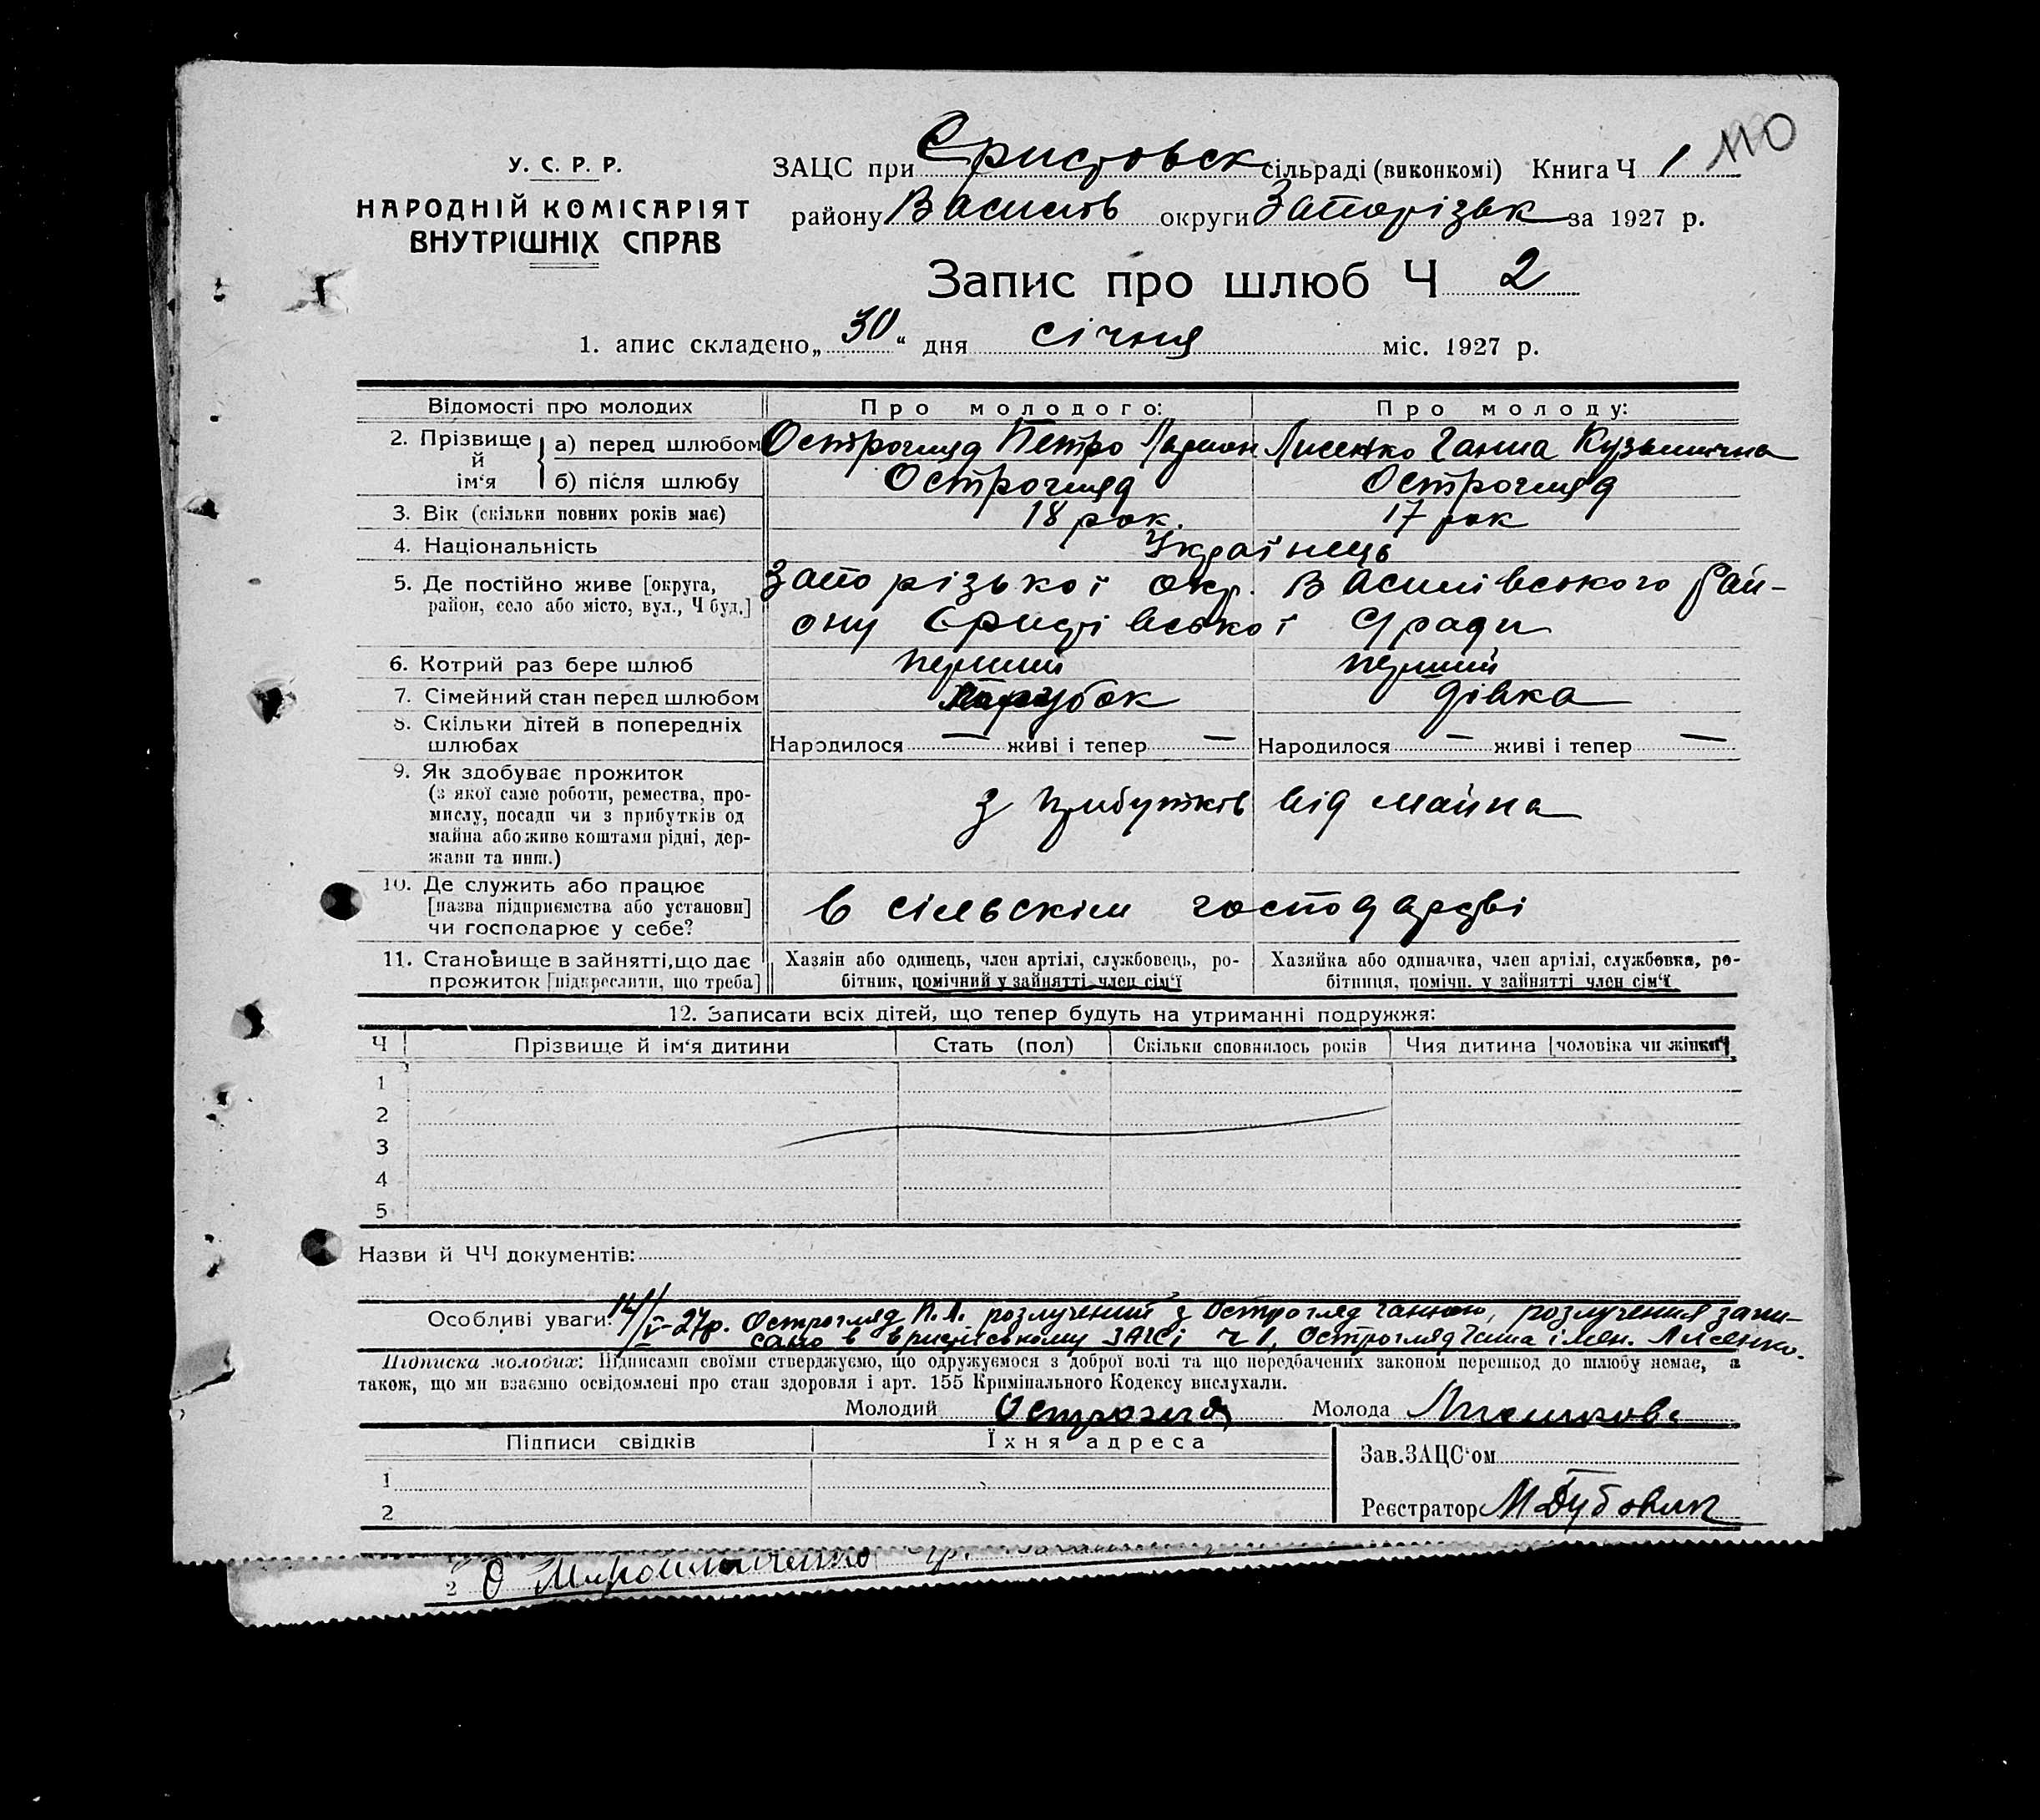 110
У. С. Р. Р.
НАРОДНІЙ КОМІСАРІЯТ
ВНУТРІШНІХ СПРАВ
ЗАЦС при Єристовск сільраді (виконкомі) Книга Ч 1
району Василів округи Запорізьк за 1927 р.
Запис про шлюб Ч 2
1. апис складено „30“ дня січня міс. 1927 р.
Відомості про молодих Про молодого: Про молоду:
2. Прізвище й ім‘я а) перед шлюбом Острогляд Петро Ларион Лисенко Ганна Кузьмична
б) після шлюбу Острогляд Острогляд
3. Вік (скільки повних років має) 18 рок. 17 рок
4. Національність Українець
5. Де постійно живе [округа, Запорізької окр. Василівського рай-
район, село або місто, вул., Ч буд.] ону Єристівської С/ради
6. Котрий раз бере шлюб перший перший
7. Сімейний стан перед шлюбом парубок дівка
8. Скільки дітей в попередніх
шлюбах Народилося — живі і тепер — Народилося — живі і тепер —
9. Як здобуває прожиток
(з якої саме роботи, ремества, про-
мислу, посади чи з прибутків од з прибутків від майна
майна або живе коштами рідні, дер-
жави та инш.)
10. Де служить або працює
[назва підприємства або установи] в сільскім господарстві
чи господарює у себе?
11. Становище в зайнятті, що дає Хазяін або одинець, член артілі, службовець, ро- Хазяйка або одиначка, член артілі, службовка, ро-
прожиток [підкреслити, що треба] бітник, помічний у зайнятті член сім‘ї бітниця, помічн. у зайнятті член сім‘ї
12. Записати всіх дітей, що тепер будуть на утриманні подружжя:
Ч Прізвище й ім‘я дитини Стать (пол) Скільки сповнилось років Чия дитина [чоловіка чи жінки]
1
2
3
4
5
Назви й ЧЧ документів:
Особливі уваги: 14/V-27р. Острогляд П.Л. розлучений з Острогляд Ганною, розлучення запи-
сано в Єристівському ЗАГСі ч 1, Острогляд Ганна імен. Лисенко.
Підписка молодих: Підписами своїми стверджуємо, що одружуємося з доброї волі та що передбачених законом перешкод до шлюбу немає, а
також, що ми взаємно освідомлені про стан здоровля і арт. 155 Кримінального Кодексу вислухали.
Молодий Остргляд Молода
Підписи свідків Їхня адреса
Зав. ЗАЦС‘ом
1
2
Реєстратор
2 Мирошниченко гр.